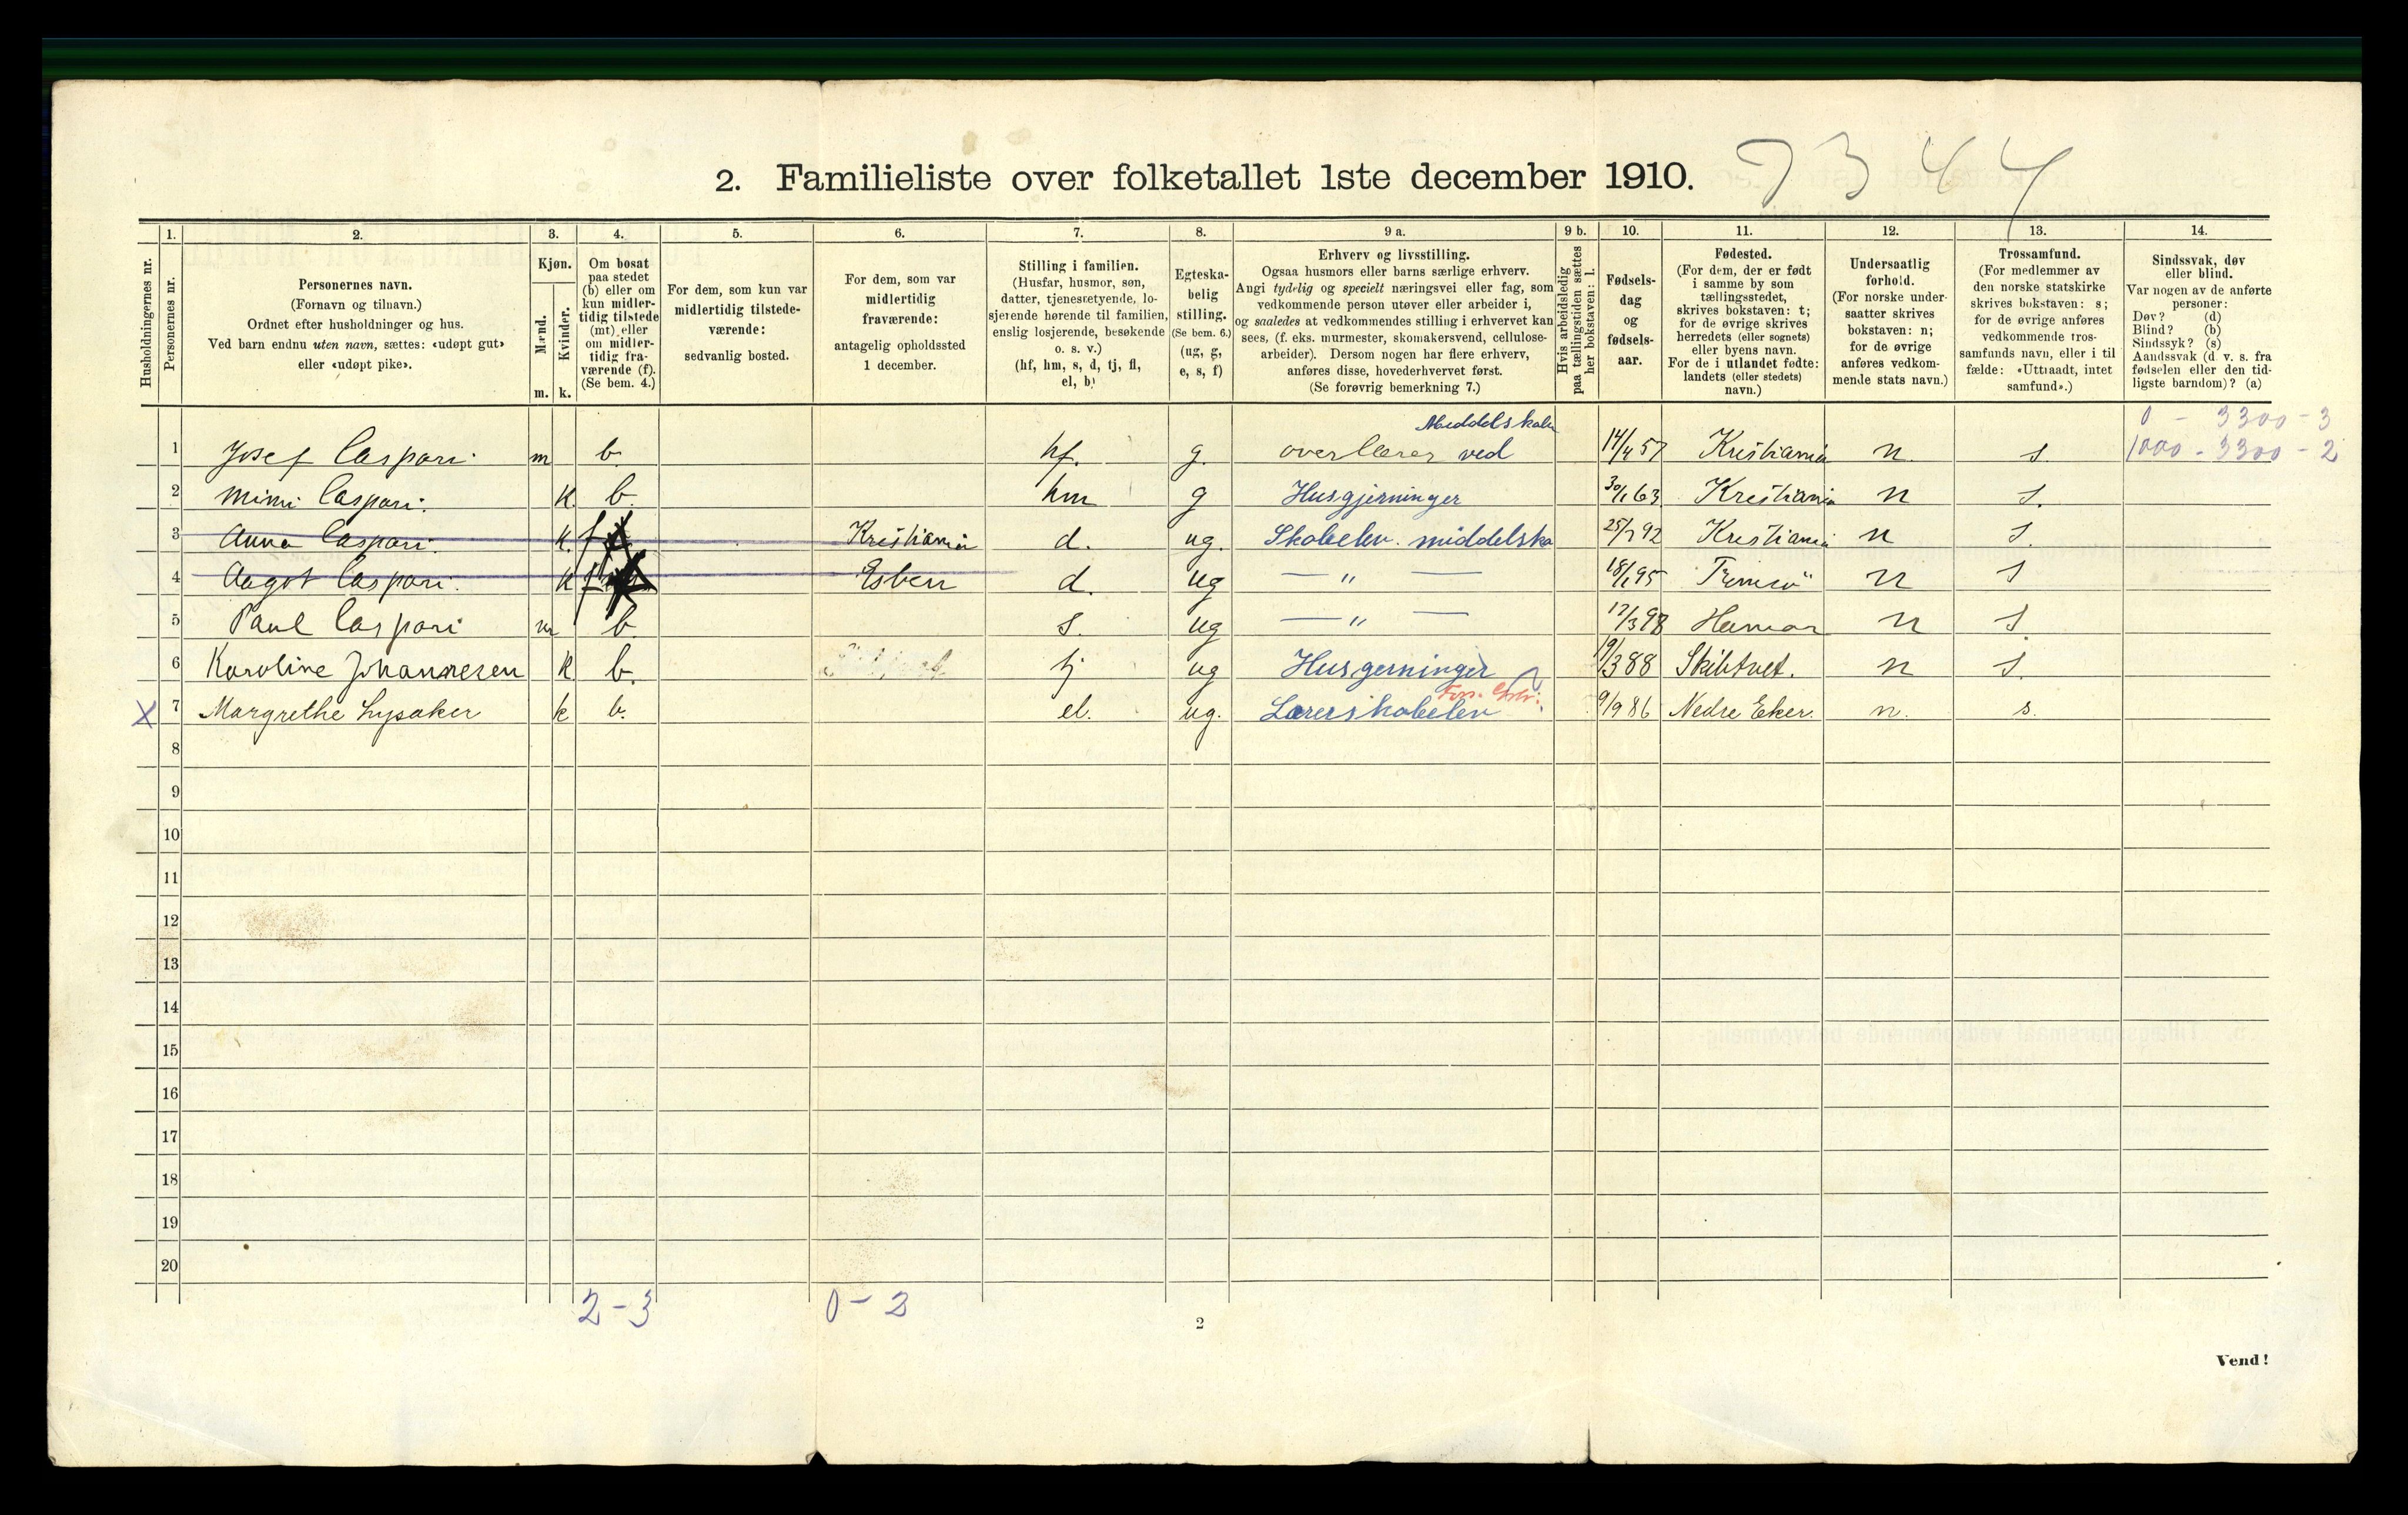 2. Familieliste over folketallet 1ste december 1910.
7344
Husholdningernes nr.
1. Personernes nr.
2. Personernes navn.
(Fornavn og tilnavn.)
Ordnet efter husholdninger og hus.
Ved barn endnu uten navn, sættes: «udøpt gut»
eller «udøpt pike».
3. Kjøn.
Mænd. m.
Kvinder. k.
4. Om bosat
paa stedet
(b) eller om
kun midler-
tidig tilstede
(mt) eller
om midler-
tidig fra-
værende (f).
(Se bem. 4.)
5. For dem, som kun var
midlertidig tilstede-
værende:
sedvanlig bosted.
6. For dem, som var
midlertidig
fraværende:
antagelig opholdssted
1 december.
7. Stilling i familien.
(Husfar, husmor, søn,
datter, tjenestetyende, lo-
sjerende hørende til familien,
enslig losjerende, besøkende
o. s. v.)
(hf, hm, s, d, tj, fl,
el, b)
8. Egteska-
belig
stilling.
(Se bem. 6.)
(ug, g,
e, s, f)
9 a. Erhverv og livsstilling.
Ogsaa husmors eller barns særlige erhverv.
Angi tydelig og specielt næringsvei eller fag, som
vedkommende person utøver eller arbeider i,
og saaledes at vedkommendes stilling i erhvervet kan
sees, (f. eks. murmester, skomakersvend, cellulose-
arbeider). Dersom nogen har flere erhverv,
anføres disse, hovederhvervet først.
(Se forøvrig bemerkning 7.)
9 b. Hvis arbeidsledig
paa tællingstiden sættes
her bokstaven: l.
10. Fødsels-
dag
og
fødsels-
aar.
11. Fødested.
(For dem, der er født
i samme by som
tællingsstedet,
skrives bokstaven: t;
for de øvrige skrives
herredets (eller sognets)
eller byens navn.
For de i utlandet fødte:
landets (eller stedets)
navn.)
12. Undersaatlig
forhold.
(For norske under-
saatter skrives
bokstaven: n;
for de øvrige
anføres vedkom-
mende stats navn.)
13. Trossamfund.
(For medlemmer av
den norske statskirke
skrives bokstaven: s;
for de øvrige anføres
vedkommende tros-
samfunds navn, eller i til
fælde: «Uttraadt, intet
samfund».)
14. Sindssvak, døv
eller blind.
Var nogen av de anførte
personer:
Døv? (d)
Blind? (b)
Sindssyk? (s)
Aandssvak (d. v. s. fra
fødselen eller den tid-
ligste barndom)? (a)
0 - 3300 - 3
Meddelskole
1 Josef Caspari. m b. hf. g. overlærer ved 14/4 57 Kristiania n. s. 1000 - 3300 - 2
2 Mimi Caspari. k. b. hm g Husgjerninger 30/1 63 Kristiania n s.
3 Anna Caspari. k. f Kristiania d. ug. Skoleelev. middelsko 25/7 92 Kristiania n s.
4 Aagot Caspari. k f Esben d. ug — " — 18/1 95 Tromsö n s
5 Paul Caspari m b. s. ug — " — 17/3 98 Hamar n s.
6 Karoline Johannesen k b. tj ug Husgerninger 19/3 88 Skibtvet. n s.
X 7 Margrethe Lysaker k b. el. ug. Lærerskoleelev 9/9 86 Nedre Eker. n. s.
8
9
10
11
12
13
14
15
16
17
18
19
20
2-3
0-2
2
Vend!